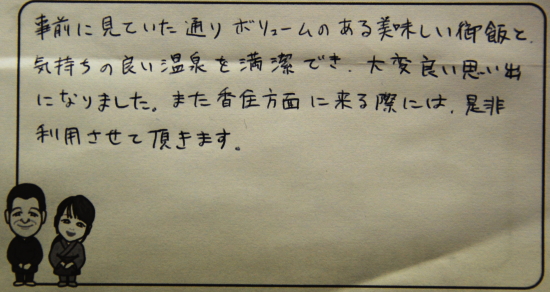 事前に見ていた通りボリュームのある美味しい御飯と、
気持ちの良い温泉を満潔でき、大変良い思い出
になりました。また香住方面に来る際には、是非
利用させて頂きます。